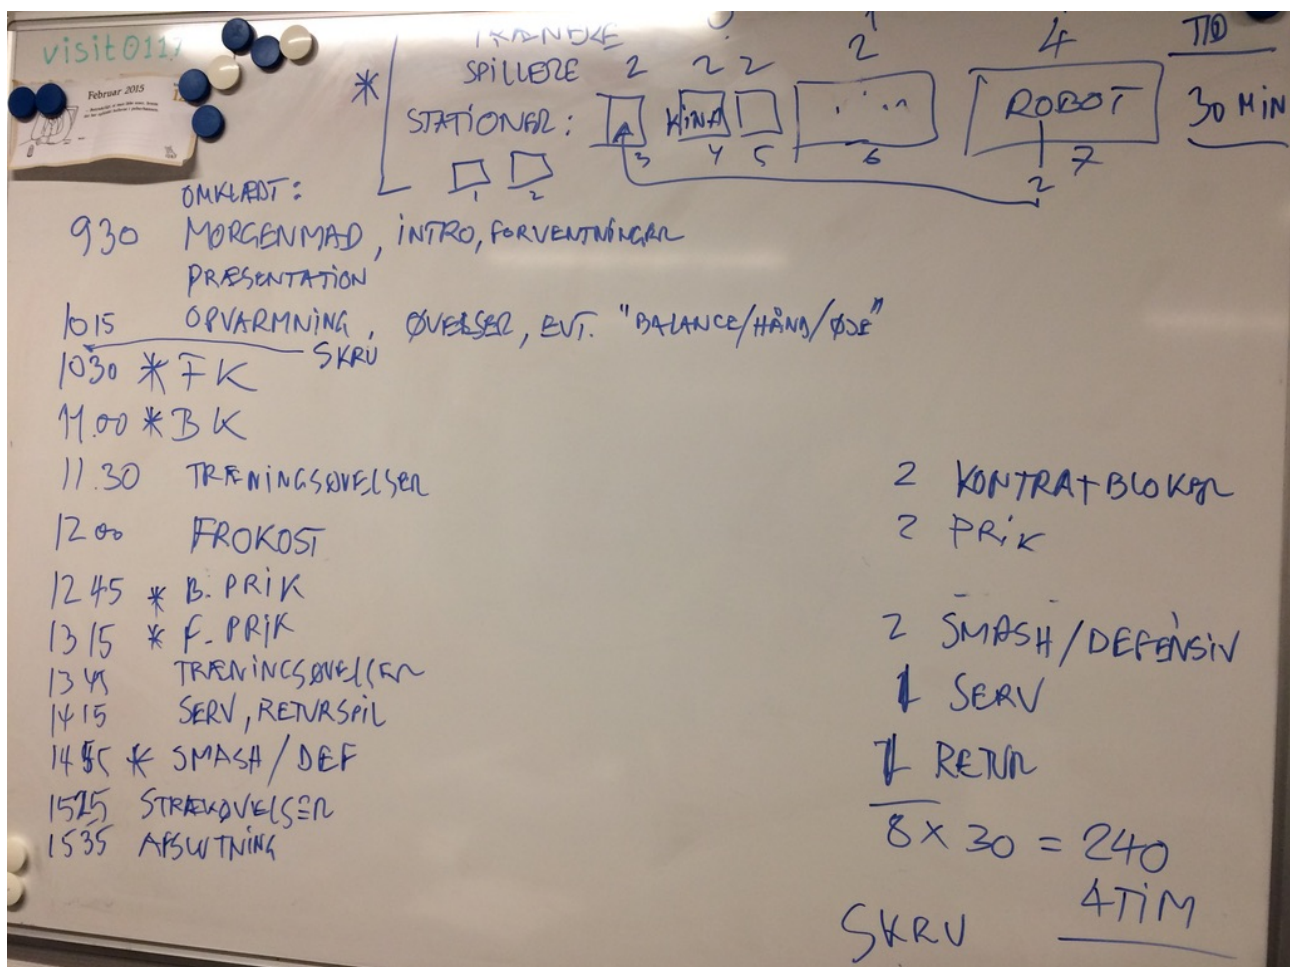 visit0117
Februar 2015
TRÆNERE 2 4 TID
* SPILLERE 2 2 2
STATIONER: A KINA ROBOT 30 MIN
3 4 5 6 7
1 2 2
OMKLÆDT:
930 MORGENMAD, INTRO, FORVENTNINGER
PRÆSENTATION
1015 OPVARMNING, ØVELSER, EVT. "BALANCE/HÅND/ØJE"
SKRU
1030 * FK
11.00 * BK
11.30 TRÆNINGSØVELSER
1200 FROKOST
1245 * B. PRIK
1315 * F. PRIK
1345 TRÆNINGSØVELSER
1415 SERV, RETURSPIL
1455 * SMASH/DEF
1525 STRÆKØVELSER
1535 AFSLUTNING
2 KONTRA+BLOKER
2 PRIK
2 SMASH/DEFENSIV
1 SERV
1 RETUR
8 x 30 = 240
4 TIM
SKRU